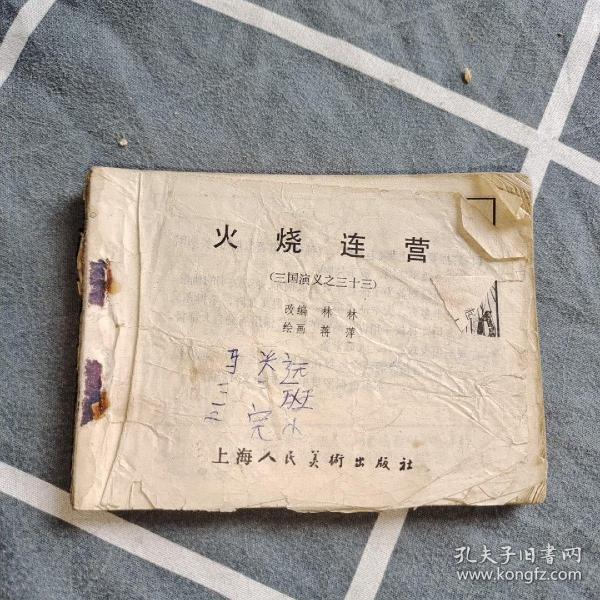 火烧连营
(三国演义之三十三)
改编 林 林
绘画 蒋 萍
二 班
上海人民美術出版社
孔夫子旧书网
www.kongfz.com